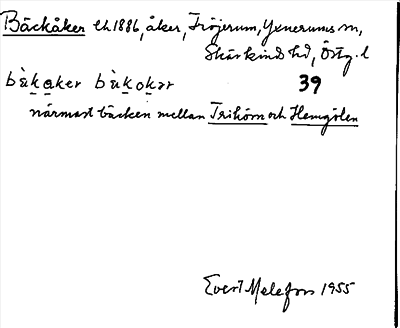 Bäckåker Ek 1886, åker, Fröjerum, Yxnerums sn,
Skärkinds hd, Östg. l
bæ̀kaker bæ̀kokər 39
närmast bäcken mellan Trihörn och Hemgölen
Evert Melefors 1955